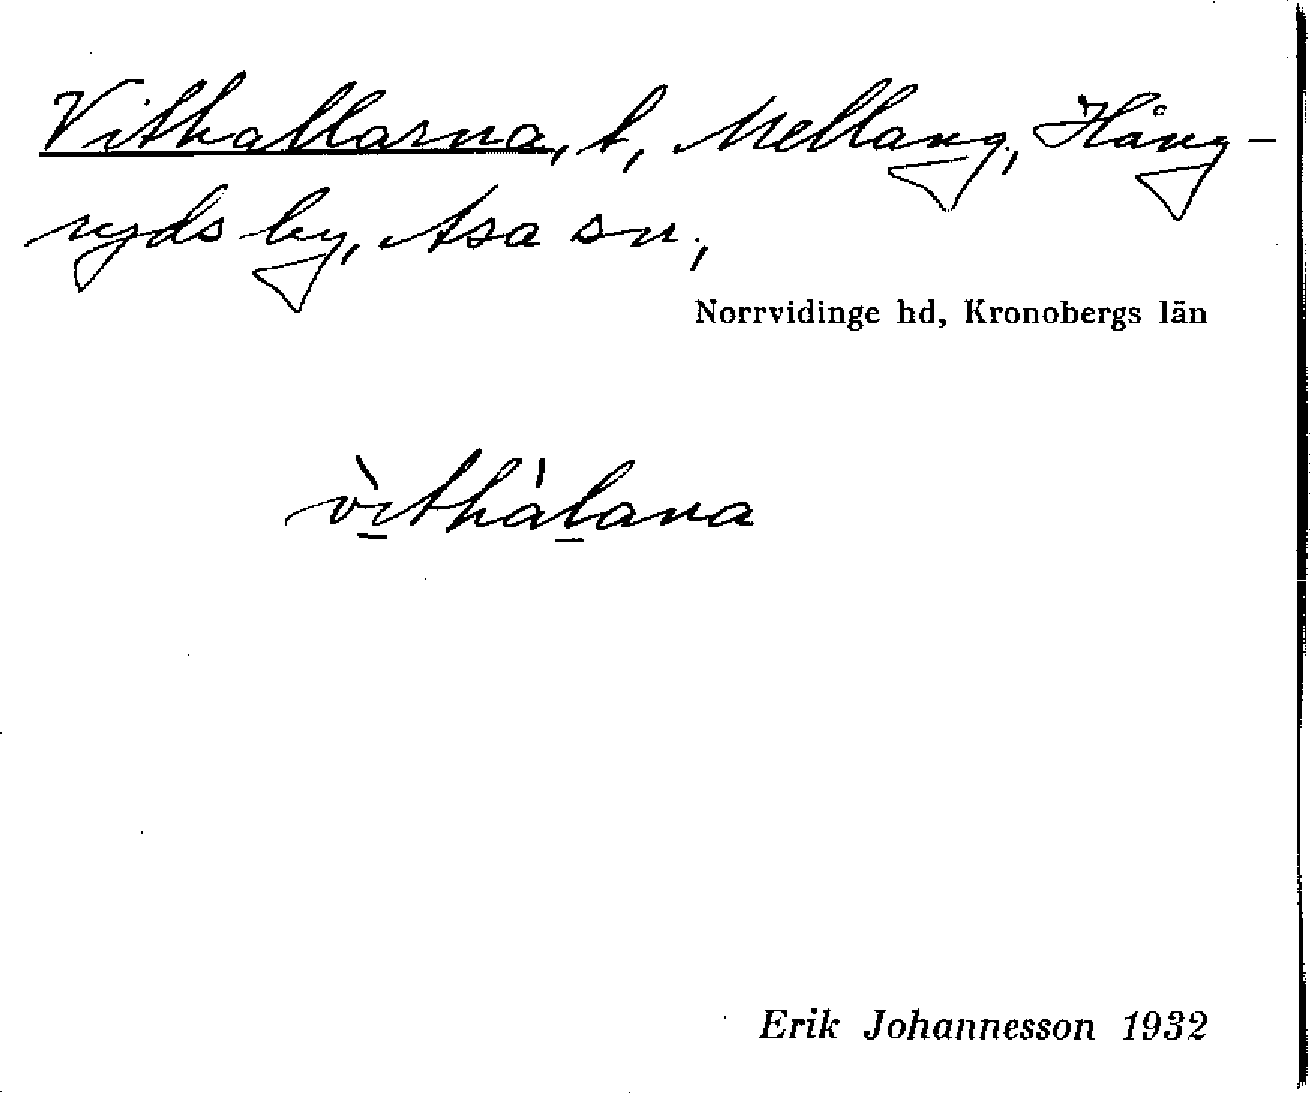 Vithallarna, t, Mellang, Häng-
ryds by, Asa sn,
Norrvidinge hd, Kronobergs län
vìt̠hál̠ana
Erik Johannesson 1932